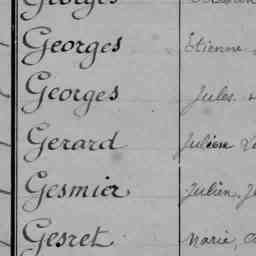 Georges
Georges Etienne
Georges Jules
Gerard Julien
Gesmier Julien, J
Gesret Marie, C